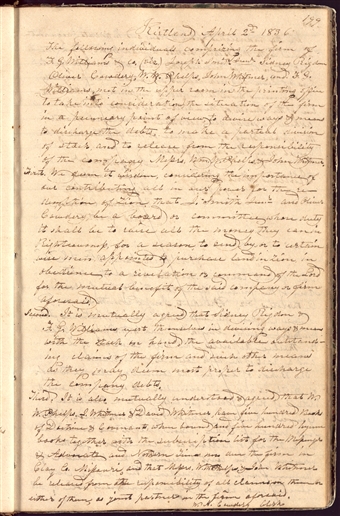 129
Kirtland April 2d 1836
The following individuals, comprizing the firm of
F G Williams & co. viz: Joseph Smith Junr. Sidney Rigdon
Oliver Cowdery, W. W. Phelps, John Whitmer, and F. G.
Williams, met in the upper room in the printing office
to take into consideration the situation of the firm
in a pecuniary point of view, to devise ways & means
to discharge the debts, to make a partial division
of stock and to release from the responsibility
of the company Messrs. Wm. W. Phelps & John Whitmer.
First. We deem it wisdom, considering the importance of
our contributing all in our power for the re-
demption of Zion, that J. Smith Junr. and Oliver
Cowdery be a board or committee whose duty
it shall be to raise all the money they can in
righteousness, for a season to send by or to certain
wise men appointed to purchase land in Zion in
obedience to a revelation or command of the Lord
for the mutual benefit of the said company or firm
aforesaid.
Second. It is mutually agreed that Sidney Rigdon &
F. G. Williams exert themselves in devising ways & means
with the stock on hand, the available outstand-
ing claims of the firm and such other means
as they may deem most proper to discharge
the company debts.
Third, It is also mutually understood & agreed that W.
W. Phelps, J. Whitmer & David Whitmer have five hundred Books
of Doctrine & Covenants when bound and five hundred hymn
books together with the subscription list for the Messenger
& Advocate and Northern Times now due the firm in
Clay Co Missouri, and that Messrs. W. W. Phelps & John Whitmer
be released from the responsibility of all claims on them or
either of them as joint partners in the firm aforesaid.
W. A. Cowdery Clerk